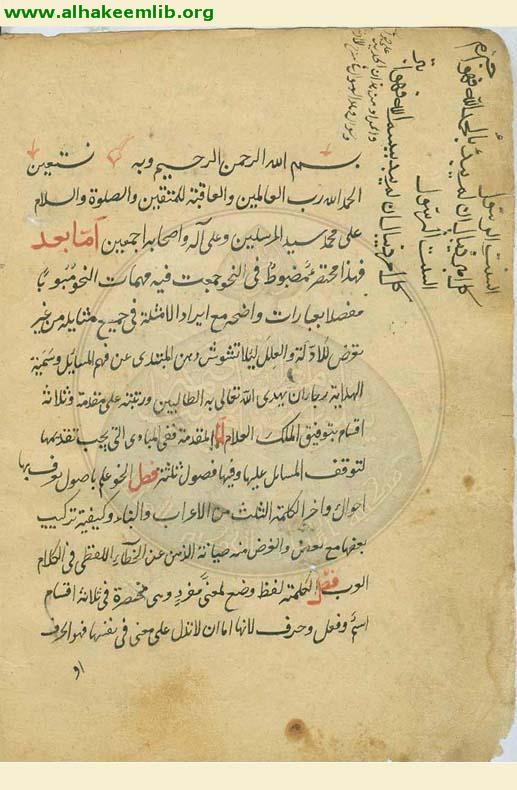 www.alhakeemlib.org
بسم الله الرحمن الرحيم وبه نستعين
الحمد لله رب العالمين والعاقبة للمتقين والصلوة والسلام
على محمد سيد المرسلين وعلى آله واصحابه اجمعين اما بعد
فهذا مختصر مضبوط فى النحو جمعت فيه مهمات النحو مبوبا
مفصلا بعبارات واضحه مع ايراد الامثلة فى جميع مسايله من غير
تعرض للادلة والعلل ليلا تشوش ذهن المبتدى عن فهم المسايل وسميته
الهداية رجاء ان يهدى الله تعالى به الطالبين ورتبته على مقدمة وثلاثة
اقسام بتوفيق الملك العلام اما المقدمة ففى المبادى التى يجب تقديمها
لتوقف المسائل عليها وفيها فصول ثلثة فصل النحو علم باصول يعرف بها
احوال واخر الكلمة الثلث من الاعراب والبناء وكيفية تركيب
بعضها مع بعض والغرض منه صيانة الذهن عن الخطاء اللفظى فى الكلام
العرب فصل الكلمة لفظ وضع لمعنى مفرد وهى منحصرة فى ثلاثة اقسام
اسم وفعل وحرف لانها اما ان لا تدل على معنى فى نفسها فهو الحرف
او